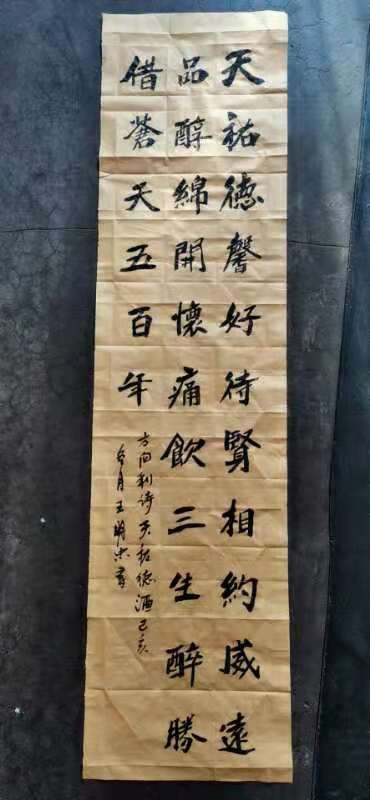 天祐德馨好待賢相約威遠
品醇綿開懷痛飲三生醉勝
借蒼天五百年
方向利詩天祐德酒己亥
月王明忠書